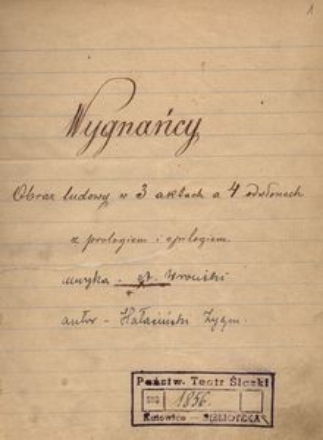 1
Wygnańcy
Obraz ludowy w 3 aktach a 4 odsłonach
z prologiem i epilogiem.
muzyka - st. Wroński
autor - Hałaciński Zygm.
Państw. Teatr Śląski
1856
Katowice - BIBLIOTEKA